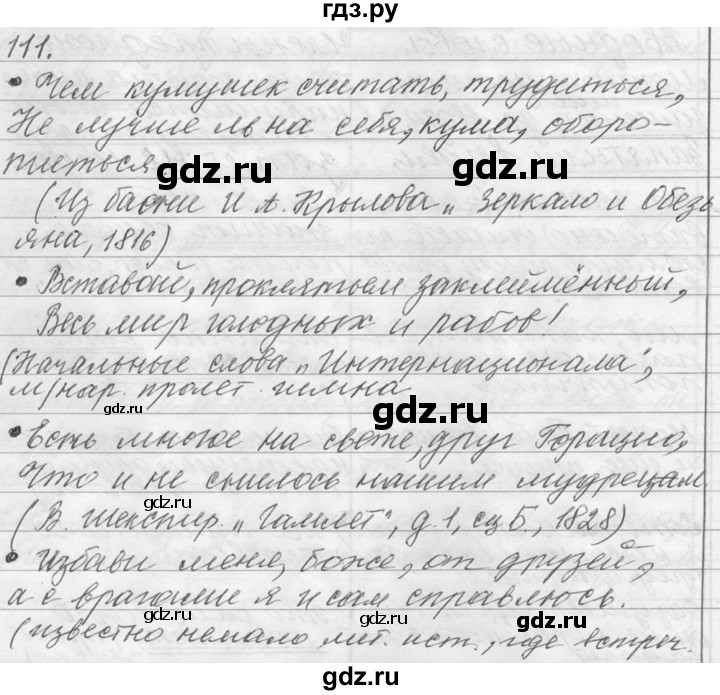 гдз.ру
111.
• Чем кумушек считать, трудиться,
Не лучше ль на себя, кума, оборо-
титься
gdz.ru
(Из басни И. А. Крылова „Зеркало и Обезь
яна, 1816)
gdz.ru
• Вставай, проклятьем заклеймённый,
Весь мир голодных и рабов!
(Начальные слова „Интернационала",
м/нар. пролет. гимна
gdz.ru
gdz.ru
• Есть многое на свете, друг Горацио,
Что и не снилось нашим мудрецам.
gdz.ru
(В. Шекспир. „Гамлет", д. 1, сц 5., 1828)
• Избави меня, боже, от друзей,
а с врагами я и сам справлюсь.
gdz.ru
(известно немало лит. ист., где встреч.
gdz.ru
gdz.ru